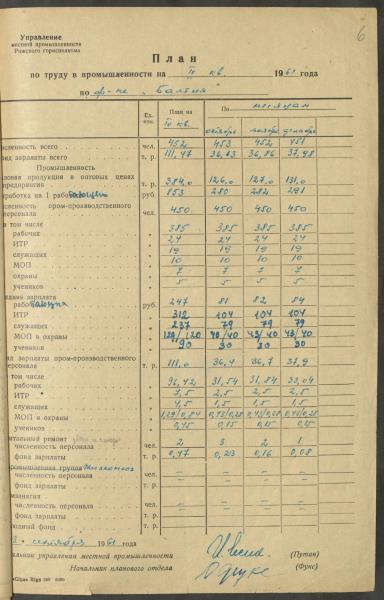 6
Управление
местной промышленности
Рижского горисполкома
План
по труду в промышленности на IV кв. 1961 года
по ф-ке „Балтия"
Ед. изм. План на IV кв. По месяцам
октябрь ноябрь декабрь
численность всего чел. 452 453 452 451
фонд зарплаты всего т. р. 111,47 36,63 36,86 37,98
Промышленность
валовая продукция в оптовых ценах
предприятия т. р. 384,0 126,0 127,0 131,0
выработка на 1 рабочего 853 280 282 291
численность пром-производственного
персонала чел. 450 450 450 450
в том числе
рабочих " 385 385 385 385
ИТР " 24 24 24 24
служащих " 19 19 19 19
МОП " 10 10 10 10
охраны " 7 7 7 7
учеников " 5 5 5 5
зарплата
руб. 247 81 82 84
ИТР " 312 104 104 104
служащих " 237 79 79 79
МОП и охраны " 129/120 43/40 43/40 43/40
учеников " 90 30 30 30
фонд зарплаты пром-производственного
персонала т. р. 111,0 36,4 36,7 37,9
в том числе
рабочих " 96,42 31,54 31,84 33,04
ИТР " 7,5 2,5 2,5 2,5
служащих " 4,5 1,5 1,5 1,5
МОП и охраны " 1,29/0,84 0,43/0,28 0,43/0,28 0,43/0,28
учеников " 0,45 0,15 0,15 0,15
капитальный ремонт
численность персонала чел. 2 3 2 1
фонд зарплаты т. р. 0,47 0,23 0,16 0,08
непромышленная группа
численность персонала чел. – – – –
фонд зарплаты т. р. – – – –
численность персонала чел.
фонд зарплаты т. р.
фонд т. р.
сентября 1961 г.
Начальник управления местной промышленности (Путан)
Начальник планового отдела (Фукс)